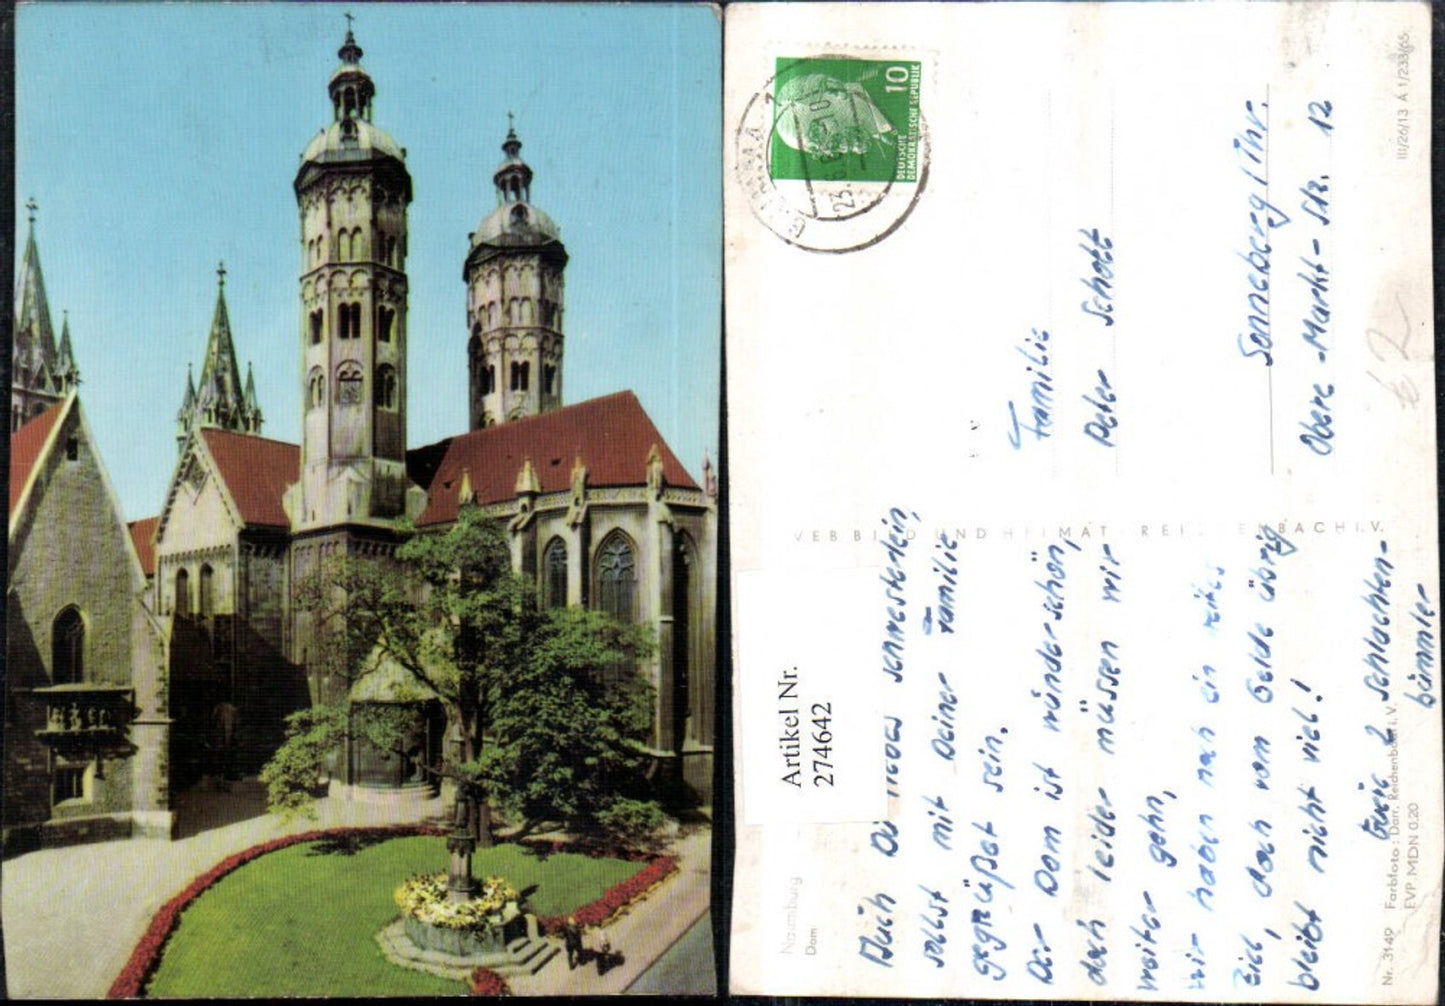 Auch Du liebes Schwesterlein,
sollst mit Deiner Familie
gegrüßet sein.
Der Dom ist wunderschön,
doch leider müssen wir
weiter gehn,
wir haben noch ein weites
Ziel, doch vom Gelde übrig
bleibt nicht viel!
2 Schlachten-
bummler
Familie
Peter Schott
Sonneberg/Thr.
Obere-Markt-Str. 12
10
DEUTSCHE
DEMOKRATISCHE REPUBLIK
VEB BILD UND HEIMAT REICHENBACH I.V.
Artikel Nr.
274642
Naumburg
Dom
Nr. 3149 Farbfoto: Darr, Reichenbach i. V.
EVP MDN 0.20
III/26/13 A 1/233/65
€ 2